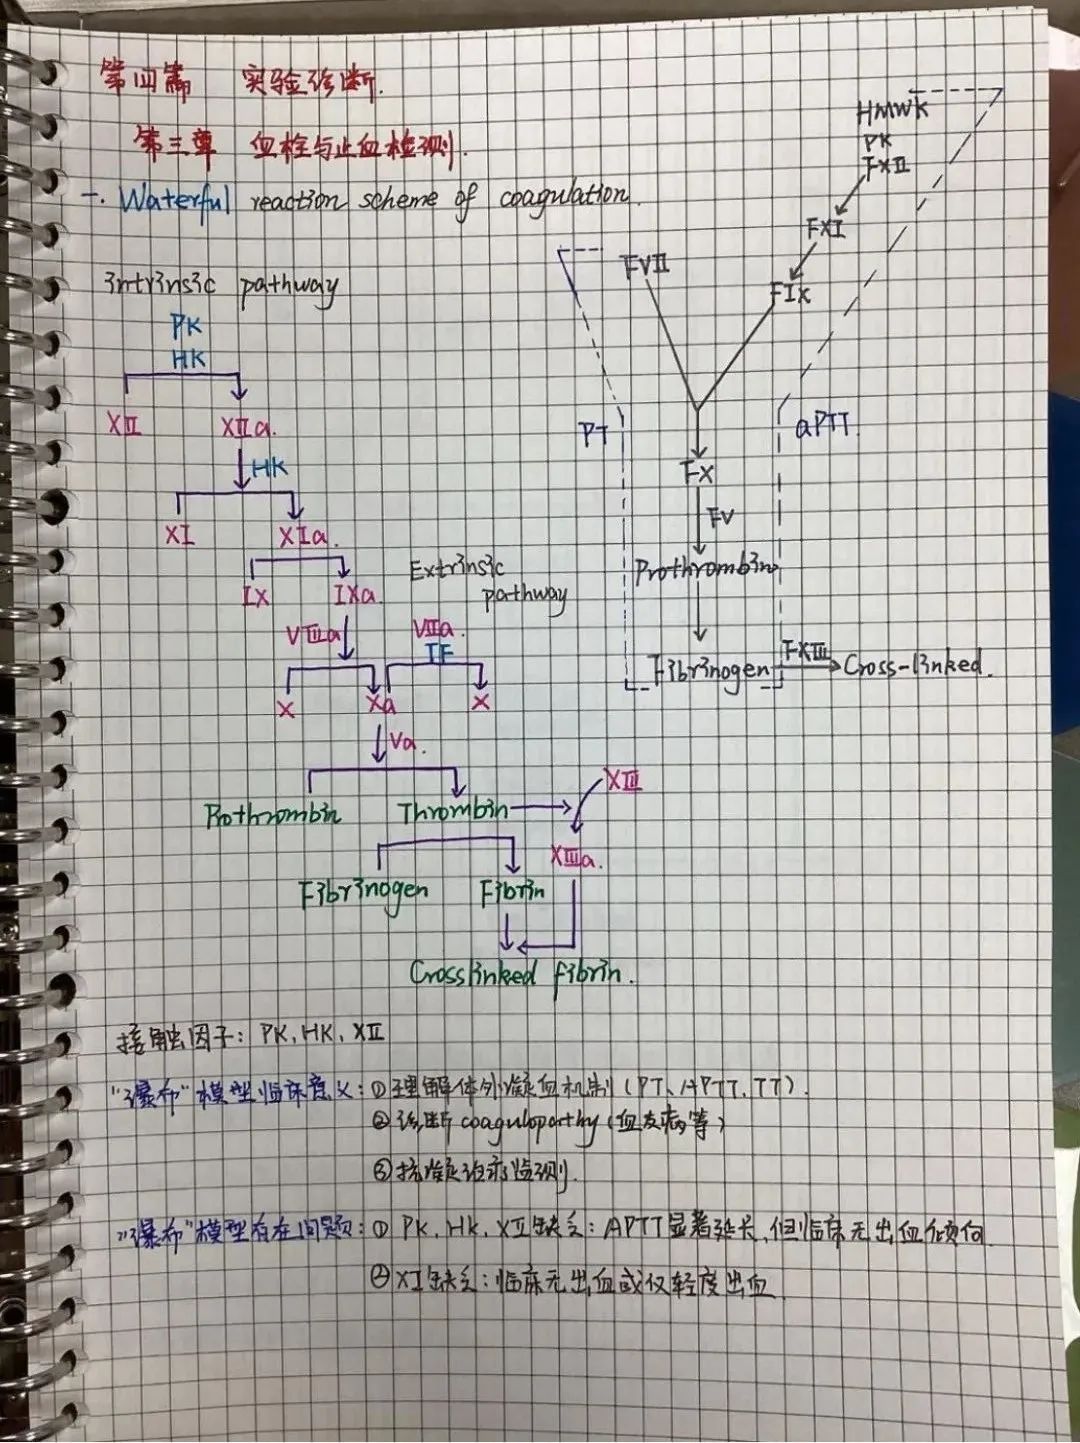 第四篇 实验诊断.
第三章 血栓与止血检测.
一. Waterful reaction scheme of coagulation.
HMWK
PK
FXII
FXI
FVII
FIX
PT
aPTT.
FX
FV
Prothrombin
Fibrinogen
FXIII
Cross-linked.
intrinsic pathway
PK
HK
XII
XIIa.
HK
XI
XIa.
IX
IXa
Extrinsic
pathway
VIIIa
VIIa.
TF
X
Xa
X
Va.
Prothrombin
Thrombin
XIII
XIIIa.
Fibrinogen
Fibrin
Crosslinked fibrin.
接触因子: PK, HK, XII
"瀑布"模型临床意义: ①理解体外凝血机制(PT、APTT、TT).
②诊断 coaguloparthy (血友病等)
③抗凝治疗监测.
"瀑布"模型存在问题: ① PK, HK, XII缺乏: APTT显著延长,但临床无出血倾向.
② XI缺乏: 临床无出血或仅轻度出血.